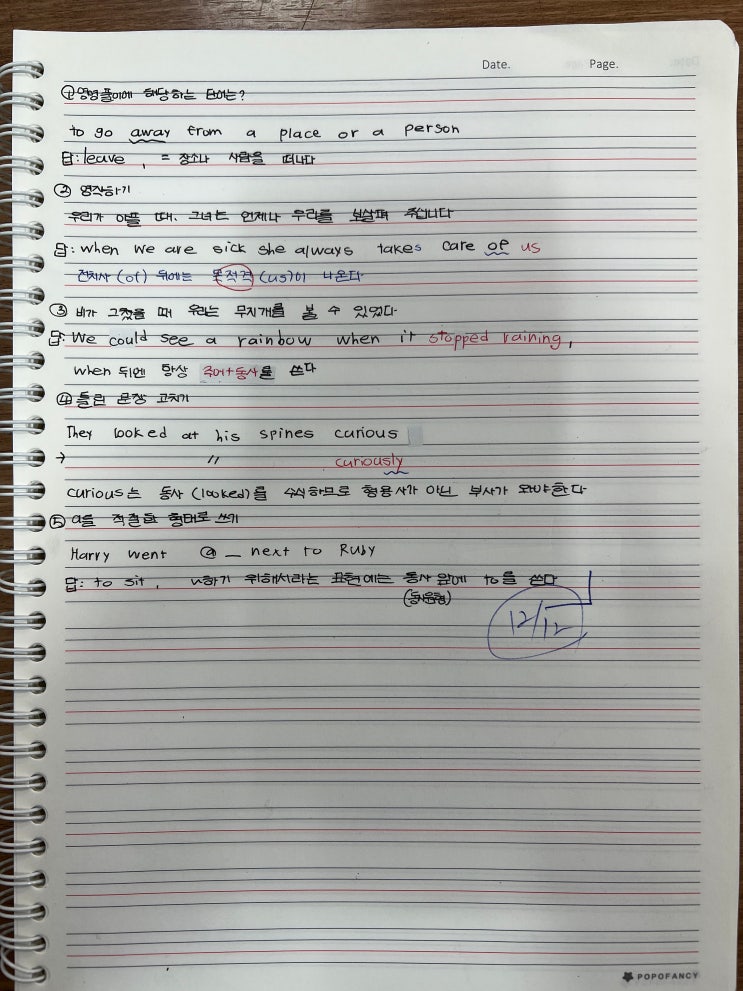 Date. Page.
① 영영풀이에 해당하는 단어는?
to go away from a place or a person
답: leave, = 장소나 사람을 떠나다
② 영작하기
우리가 아플 때, 그녀는 언제나 우리를 보살펴 주십니다
답: when we are sick she always takes care of us
전치사 (of) 뒤에는 목적격 (us)이 나온다
③ 비가 그쳤을 때 우리는 무지개를 볼 수 있었다
답: We could see a rainbow when it stopped raining,
when 뒤엔 항상 주어+동사를 쓴다
④ 틀린 문장 고치기
They looked at his spines curious
→ 〃 curiously
curious는 동사 (looked)를 수식하므로 형용사가 아닌 부사가 와야한다
⑤ a를 적절한 형태로 쓰기
Harry went ⓐ _ next to Ruby
답: to sit, v하기 위해서라는 표현에는 동사 앞에 to를 쓴다
(동사원형)
12/12
POPOFANCY